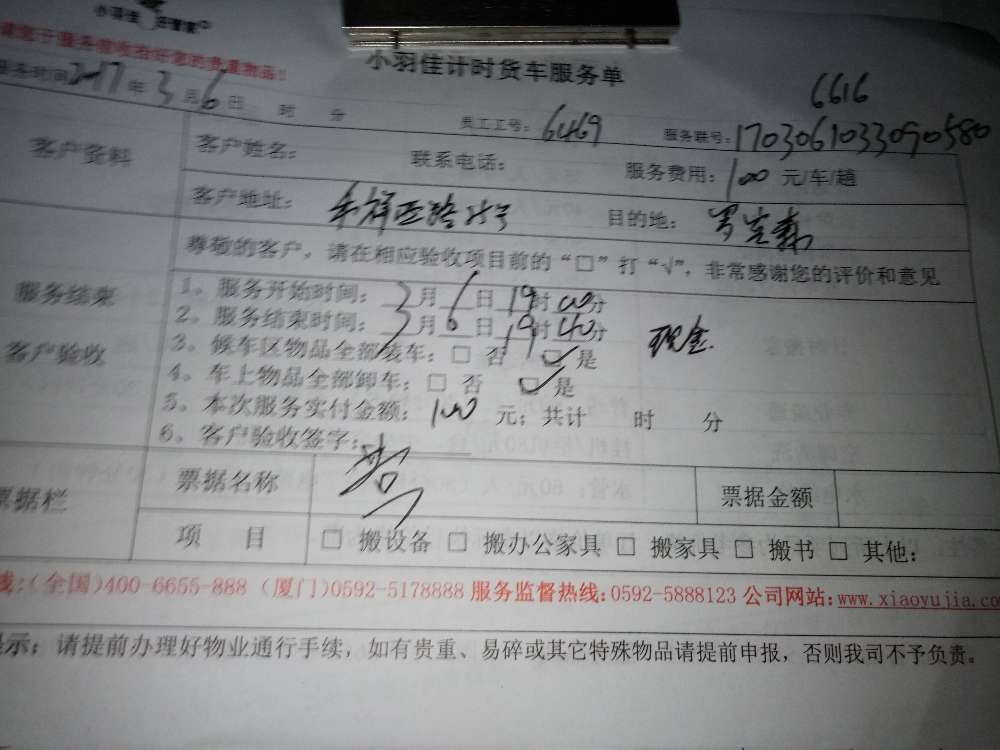 小羽佳 好管家
小羽佳计时货车服务单
服务时间2017年3月6日 时 分
员工工号：6469
6616
服务联号：1703061033090580
客户资料
客户姓名：
联系电话：
服务费用：100元/车/趟
客户地址：
目的地：
尊敬的客户，请在相应验收项目前的“□”打“√”，非常感谢您的评价和意见
服务结束
客户验收
1、服务开始时间：3月6日19时00分
2、服务结束时间：3月6日19时40分
现金
3、候车区物品全部装车：□ 否 ☑ 是
4、车上物品全部卸车：□ 否 ☑ 是
5、本次服务实付金额：100元；共计 时 分
6、客户验收签字：
票据栏
票据名称
票据金额
项 目
□ 搬设备 □ 搬办公家具 □ 搬家具 □ 搬书 □ 其他：
线：(全国)400-6655-888 (厦门)0592-5178888 服务监督热线：0592-5888123 公司网站：www.xiaoyujia.co
示：请提前办理好物业通行手续，如有贵重、易碎或其它特殊物品请提前申报，否则我司不予负责。